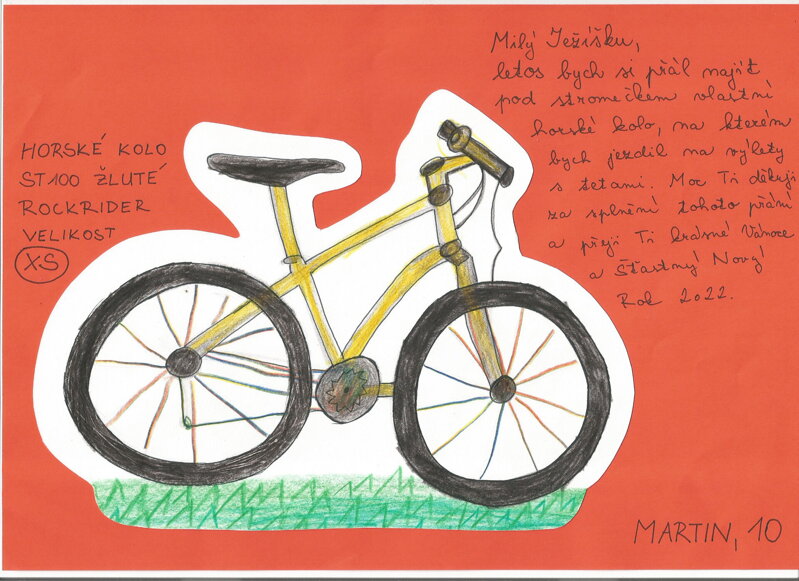 Milý Ježíšku,
letos bych si přál najít
pod stromečkem vlastní
horské kolo, na kterém
bych jezdil na výlety
s tetami. Moc Ti děkuji
za splnění tohoto přání
a přeji Ti krásné Vánoce
a Šťastný Nový
Rok 2022.
HORSKÉ KOLO
ST100 ŽLUTÉ
ROCKRIDER
VELIKOST
XS
MARTIN, 10